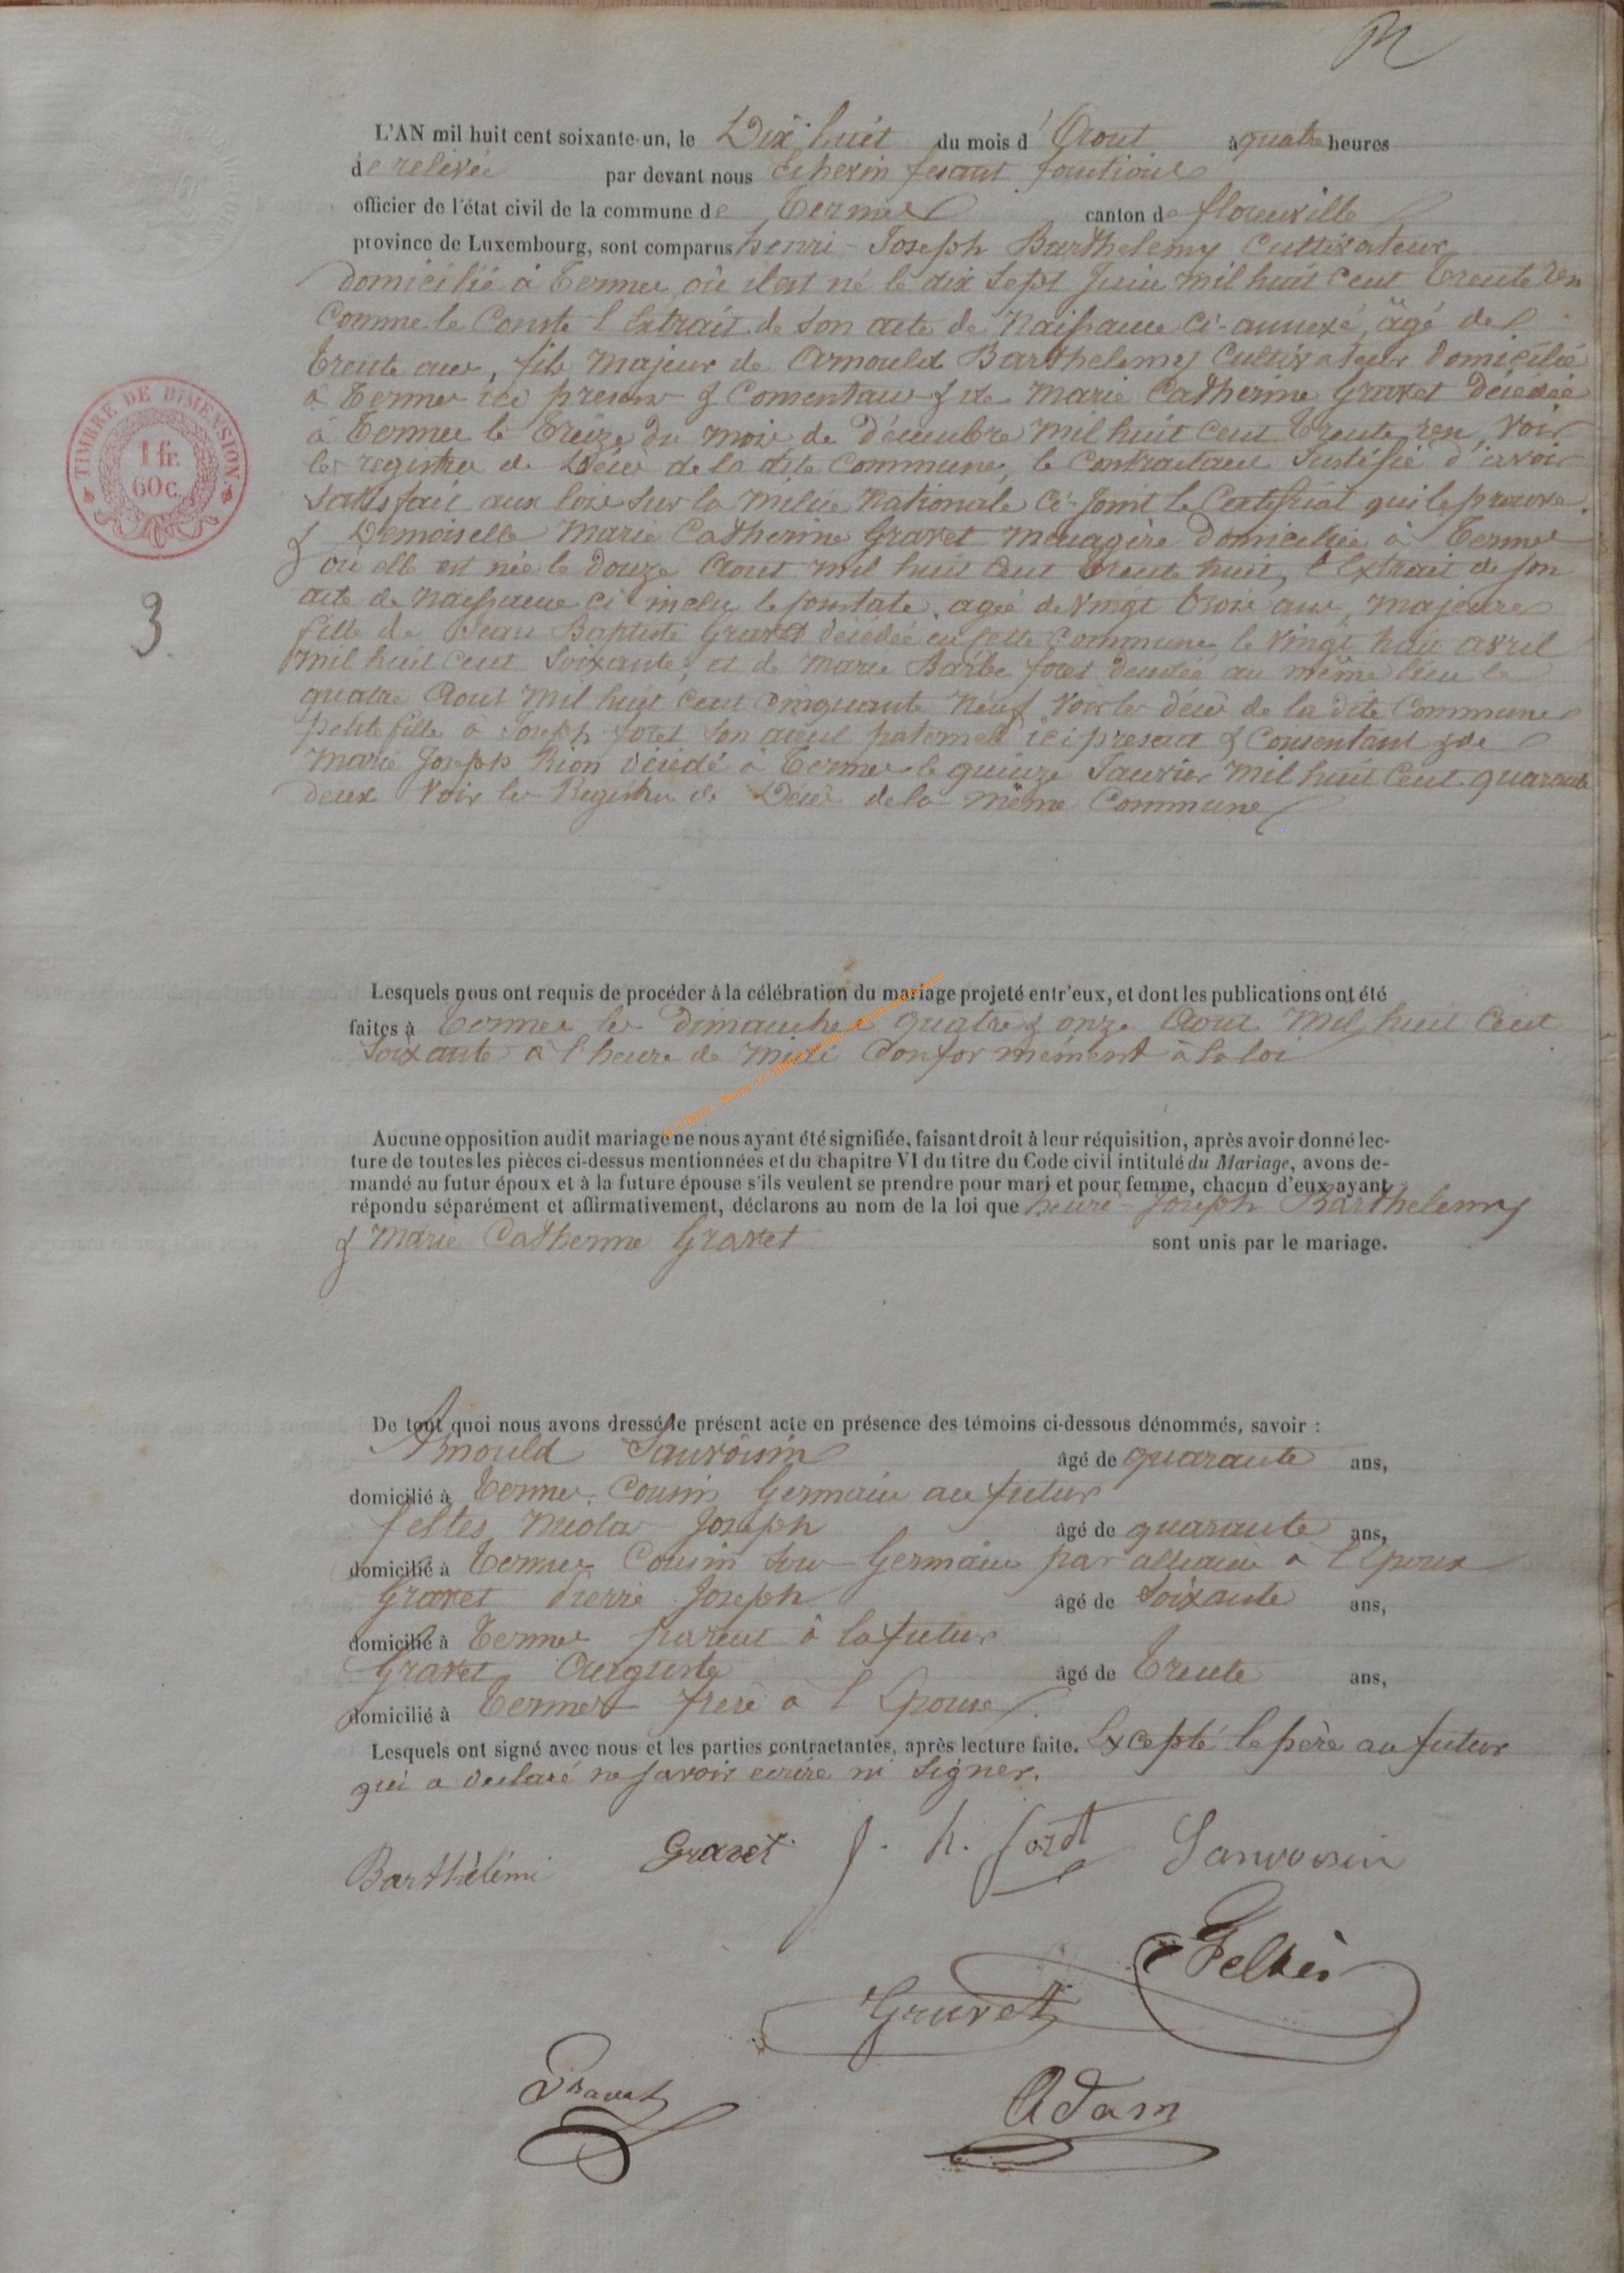 L'AN mil huit cent soixante-un, le Dix huit du mois d'Aout à quatre heures
de relevée par devant nous Echevin fesant fonctions
officier de l'état civil de la commune de Termes canton de florenville
province de Luxembourg, sont comparus henri - Joseph Barthelemy Cultivateur
domicilié à Termes où il est né le dix Sept Juin mil huit cent trente un
Comme le Conste l'Extrait de Son acte de Naissance Ci-annexé, âgé de
trente ans, fils Majeur de Arnould Barthelemy Cultivateur domicilié
à Termes ici present & Consentant & de Marie Catherine Gravet Décédée
à Termes le treize du mois de Décembre mil huit cent trente un, Voir
les registres de Décès de la dite Commune, le Contractant Justifié d'avoir
Satisfait aux lois Sur la Milice Nationale Ci-Joint le Certificat qui le prouve.
& Demoiselle Marie Catherine Gravet menagère domiciliée à Termes
où elle est née le Douze Aout mil huit Cent trente huit, l'Extrait de son
acte de naissance Ci inclu le Constate, agée de vingt trois ans, majeure
fille de Jean Baptiste Gravet décédée en cette Commune le vingt huit avril
mil huit Cent Soixante, et de Marie Barbe foret décédée au même lieu le
quatre Aout mil huit cent cinquante Neuf Voir les décès de la dite Commune
petite fille à Joseph foret Son aïeul paternel ici present & Consentant & de
Marie Joseph Rion décédé à Termes le quinze Janvier mil huit Cent quarante
deux Voir les Registres de Décès de la même Commune
TIMBRE DE DIMENSION
1 fr.
60 c.
3.
Lesquels nous ont requis de procéder à la célébration du mariage projeté entr'eux, et dont les publications ont été
faites à Termes les Dimanches quatre & onze Aout mil huit Cent
Soixante à l'heure de midi Conformément à la loi
Aucune opposition audit mariage ne nous ayant été signifiée, faisant droit à leur réquisition, après avoir donné lec-
ture de toutes les pièces ci-dessus mentionnées et du chapitre VI du titre du Code civil intitulé du Mariage, avons de-
mandé au futur époux et à la future épouse s'ils veulent se prendre pour mari et pour femme, chacun d'eux ayant
répondu séparément et affirmativement, déclarons au nom de la loi que henri - Joseph Barthelemy
& Marie Catherine Gravet sont unis par le mariage.
De tout quoi nous avons dressé le présent acte en présence des témoins ci-dessous dénommés, savoir :
Arnould Sauvoisin âgé de quarante ans,
domicilié à Termes, Cousin Germain au futur
feltes Nicolas Joseph âgé de quarante ans,
domicilié à Termes Cousin Sou Germain par alliance à l'Epoux
Gravet Pierre Joseph âgé de Soixante ans,
domicilié à Termes parent à la futur
Gravet Auguste âgé de trente ans,
domicilié à Termes frere à l'Epouse
Lesquels ont signé avec nous et les parties contractantes, après lecture faite. Excepté le père au futur
qui a declaré ne savoir ecrire ni Signer.
Barthèlémi Gravet J. h. foret Sanvoisin
Feltès
Gravet
Gravet
Adam